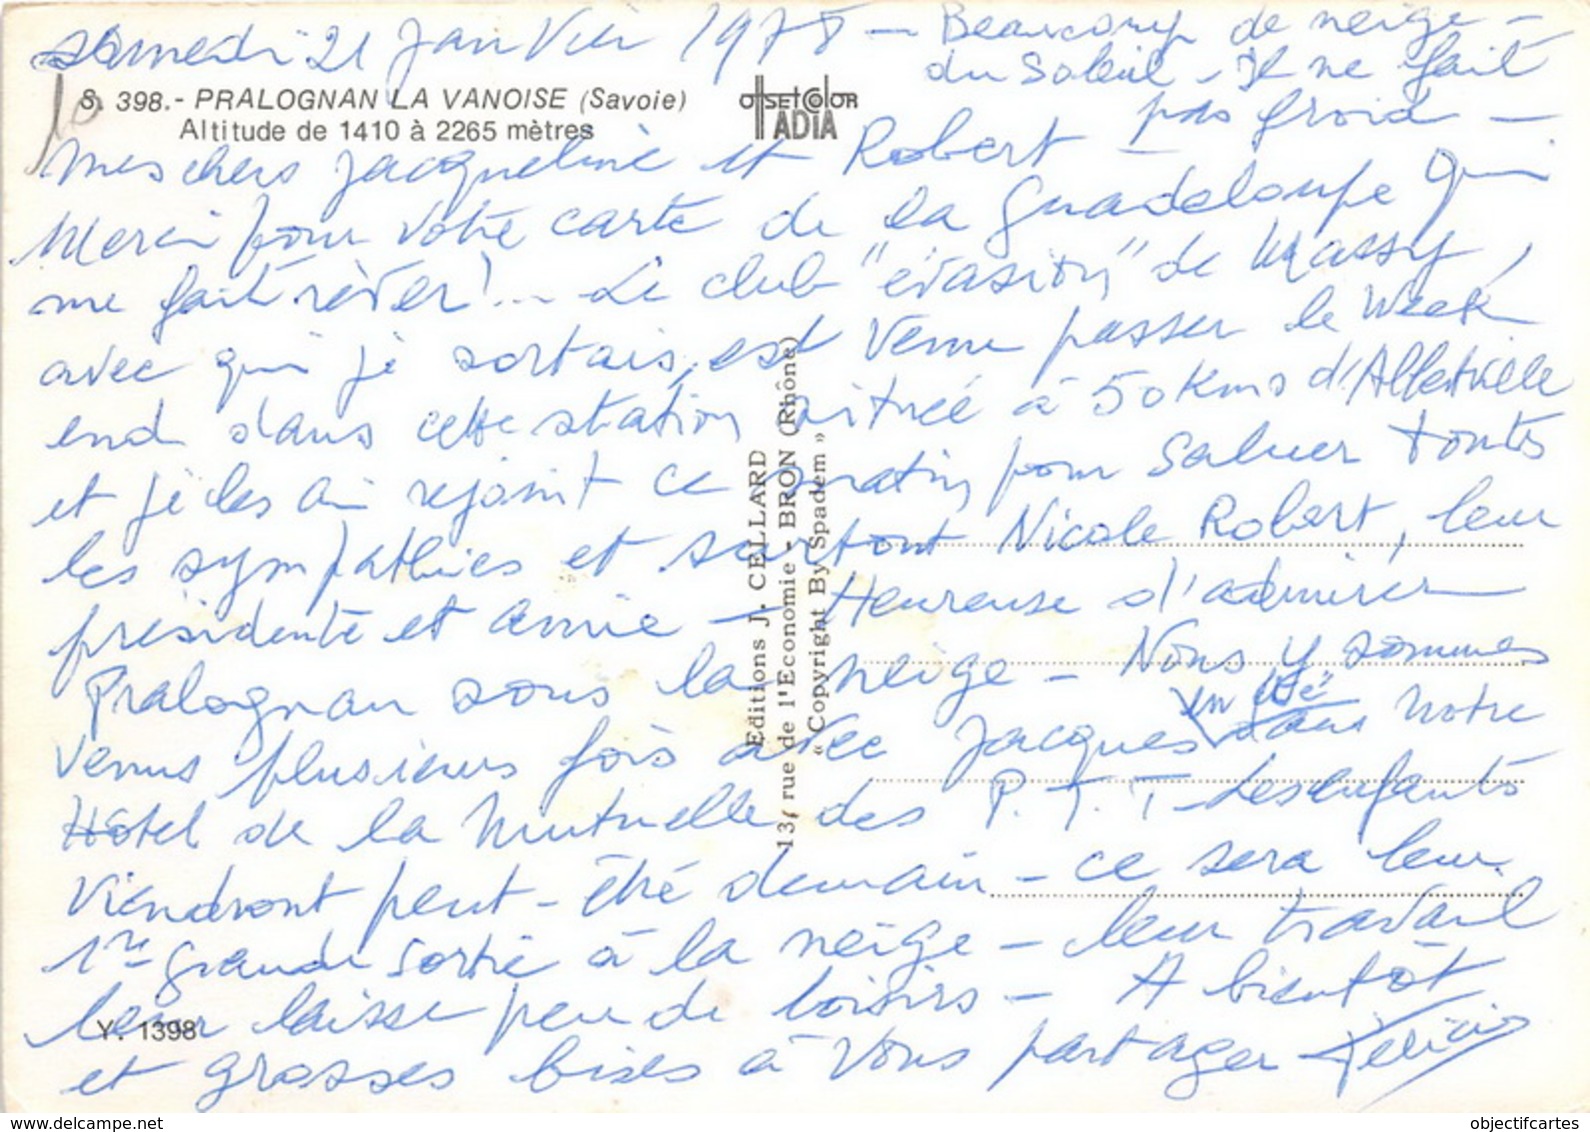 samedi 21 Janvier 1978 — Beaucoup de neige —
du soleil - Il ne fait
pas froid —
S. 398.- PRALOGNAN LA VANOISE (Savoie)
Altitude de 1410 à 2265 mètres
OFFSETCOLOR
ADIA
Mes chers Jacqueline et Robert
Merci pour votre carte de la Guadeloupe qui
me fait rêver!... Le club "évasion" de Massy,
avec qui je sortais, est venu passer le Week
end dans cette station située à 50 Kms d'Albertville
et je les ai rejoint ce matin pour saluer toutes
les sympathies et surtout Nicole Robert, leur
présidente et amie — Heureuse d'admirer
Pralognan sous la neige - Nous y sommes
venus plusieurs fois avec Jacques en été dans notre
Hôtel de la Mutuelle des P.T.T - Les enfants
viendront peut-être demain - ce sera leur
1re grande sortie à la neige - leur travail
leur laisse peu de loisirs - A bientôt
et grosses bises à vous partager Félicie
Editions J. CELLARD
13, rue de l'Economie - BRON (Rhône)
« Copyright By Spadem »
Y. 1398
www.delcampe.net
objectifcartes